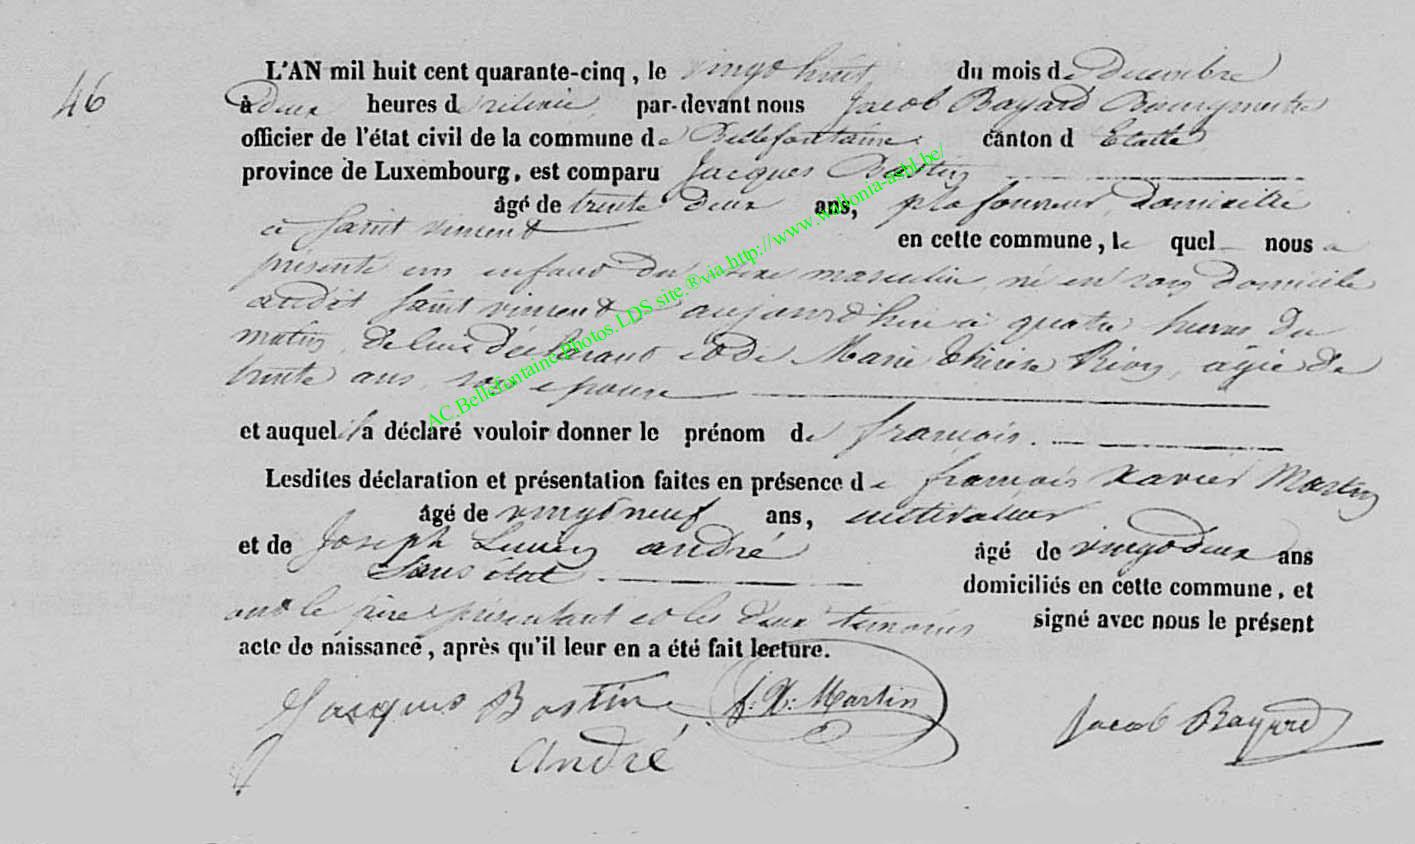 46
L'AN mil huit cent quarante-cinq, le vingt huit du mois de Decembre
à deux heures de relevée, par-devant nous Jacob Bayard Bourgmestre
officier de l'état civil de la commune de Bellefontaine canton d Etalle
province de Luxembourg, est comparu Jacques Bastin
âgé de trente deux ans, plafonneur, domicilié
à Saint vincent en cette commune, le quel nous a
présenté un enfant du sexe masculin, né en son domicile
audit Saint vincent aujourd'hui à quatre heures du
matin, de lui déclarant et de Marie thérese, agée de
trente ans, son epouse
et auquel il a déclaré vouloir donner le prénom de françois.
Lesdites déclaration et présentation faites en présence de françois Xavier Martin
âgé de vingt neuf ans, cultivateur
et de Joseph Lucien andré âgé de vingt deux ans
Sans état domiciliés en cette commune, et
ont le père présentant et les deux témoins signé avec nous le présent
acte de naissance, après qu'il leur en a été fait lecture.
Jacques Bastin f. X. Martin Jacob Bayard
André
AC.Bellefontaine.Photos.LDS site.®via http://www.wallonia-asbl.be/